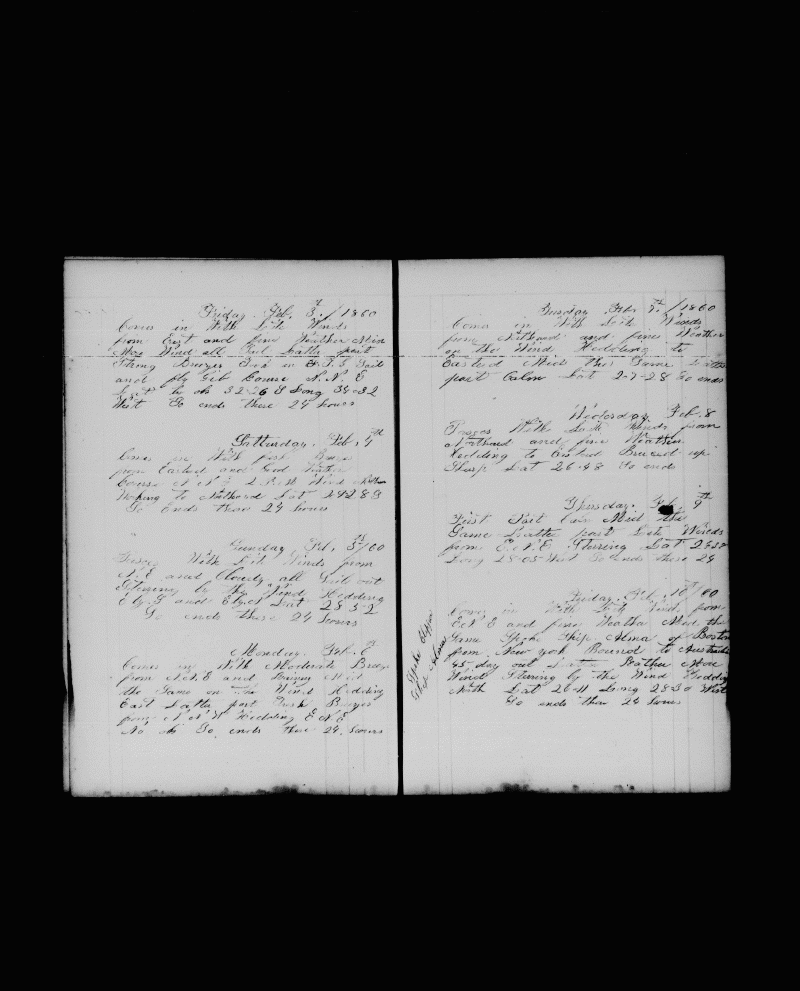 Friday Feb. 3 / 1860
Comes in With Lite Winds
from East and fine Weather
More Wind all Sail Latter part
Strong Breezes
and Course N.N.E
Long 34-32
West So ends these 24 hours
Satturday, Feb, 4th
Comes in With
from Easterd and Good Weather
Course N.N.E Wind
to Northard Lat
So Ends these 24 hours
Sunday Feb, 5th/60
With Lite Winds from
N.E and Cloudy all Sail out
Stering by the Wind Hedding
E by S and Lat 28 5-2
So ends these 24 hours
Monday. Feb. 6
Comes in With Moderate Breeze
from N.N.E and
the Same on The Wind Hedding
East Latter part Fresh Breezes
from N.N.W Hedding E.N.E
No ob So ends these 24 hours
Tuesday Feb 7th / 1860
Comes in With Lite Winds
from Northard and fine Weather
on the Wind Hedding to
Easterd Mid the Same Latter
part Calm Lat 27-28 So ends
Wedensday Feb. 8
With Winds from
Northard and fine Weather
Hedding to Easterd Braced up
Sharp Lat 26-48 So ends
Thursday, Feb, 9th
First Part Mid the
Same Latter part Lite Winds
from E.N.E. Stering Lat
Long 28-05 West So ends these 24
Friday Feb, 10th/60
Comes in With Lite Winds from
E.N.E and fine Weather Mid the
Same Spoke Ship Alma of Boston
from New york Bound to
45 day out Latter Weather More
Wind Stering by the Wind Hedding
North Lat 26-11 Long 28-30 West
So ends these 24 hours
Spoke
Ship Alma